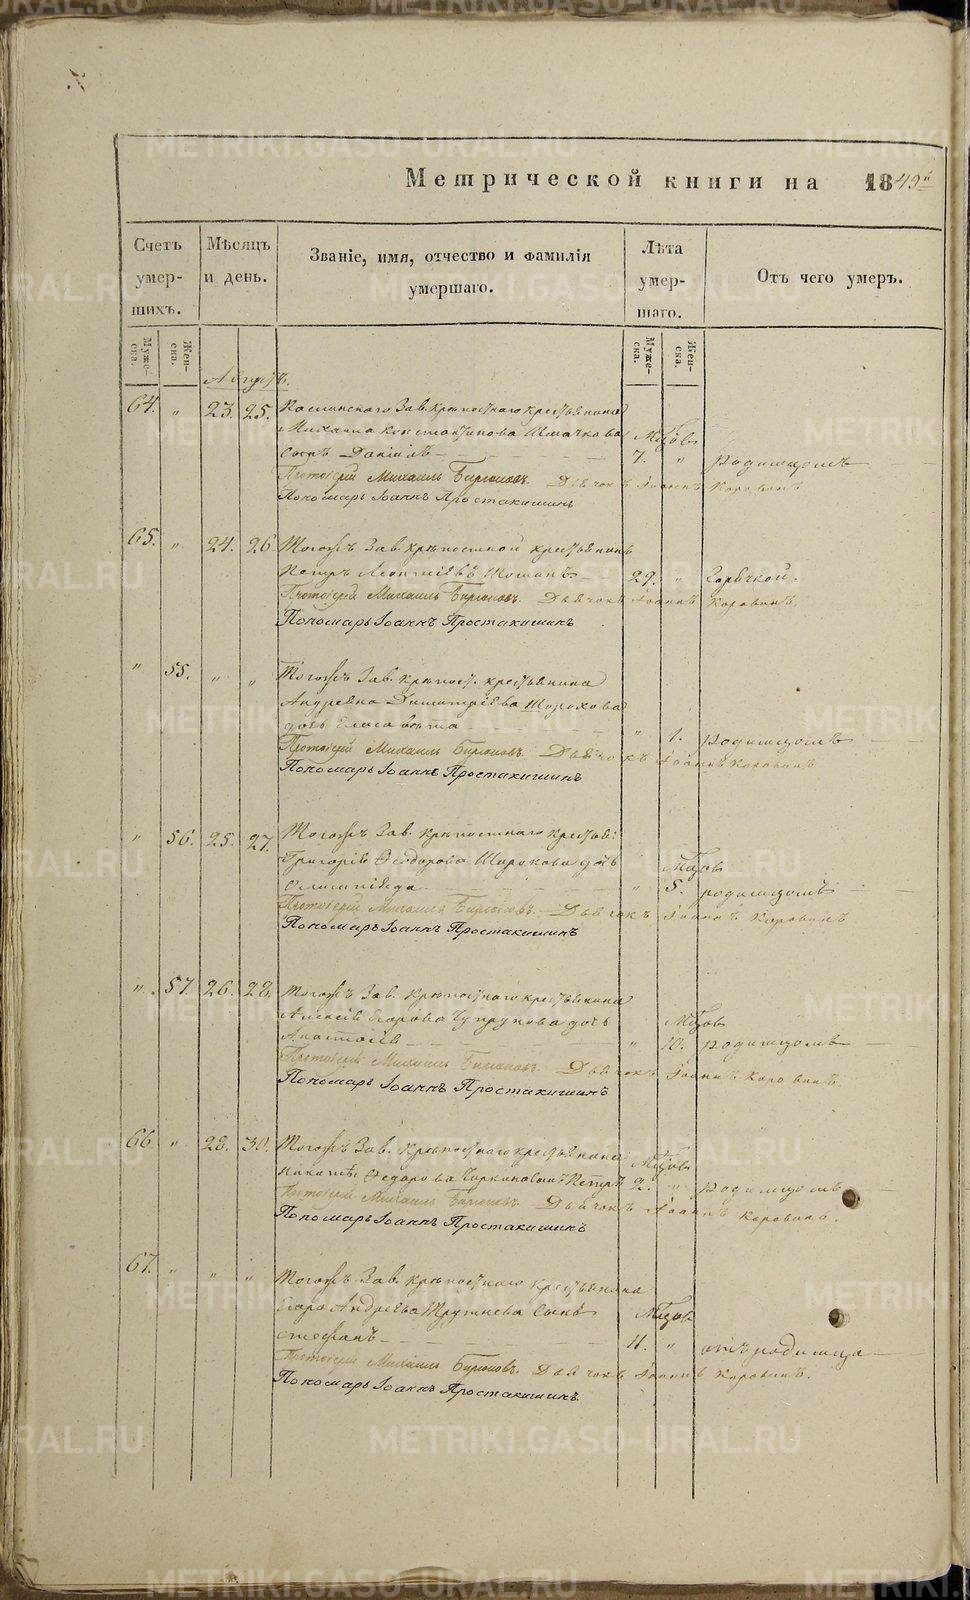 Метрической книги на 1849й
Счетъ умер- шихъ.
Мѣсяцъ и день.
Званіе, имя, отчество и фамилія умершаго.
Лѣта умер- шаго.
Отъ чего умеръ.
Муже- ска.
Жен- ска.
Муже- ска.
Жен- ска.
Августъ.
64. " 23. 25. Каслинскаго Зав. крѣпостнаго крестьянина
Михаила Константинова Шмачкова Мѣсцов
Сынъ Даніилъ 7. " Родимцемъ
Протоіерей Михаилъ Бирюковъ. Дьячокъ Іоаннъ Коровинъ
Пономарь Іоаннъ Простакишинъ
65. " 24. 26 Тогожъ Зав. крѣпостной крестьянинъ
Петръ Леонтіевъ 29. " Горячкой.
Протоіерей Михаилъ Бирюковъ. Дьячокъ Іоаннъ Коровинъ.
Пономарь Іоаннъ Простакишинъ
" 55. " " Тогожъ Зав. крѣпост. крестьянина
Андреяна Димитріева Шорохова
дочь Елисавета " 1. родимцомъ
Протоіерей Михаилъ Бирюковъ. Дьячокъ Іоаннъ Коровинъ
Пономарь Іоаннъ Простакишинъ
" 56. 25. 27. Тогожъ Зав. крѣпостнаго крестья:
Григорія Феодорова Широкова дочь Мѣсцов
Олимпіяда " 5. родимцомъ
Протоіерей Михаилъ Бирюковъ. Дьячокъ Іоаннъ Коровинъ
Пономарь Іоаннъ Простакишинъ
" 57. 26. 28. Тогожъ Зав. крѣпостнаго крестьянина
Алексія Егорова Чупрунова дочь Мѣсцов
Анастасія " 10. родимцомъ
Протоіерей Михаилъ Бирюковъ. Дьячокъ Іоаннъ Коровинъ.
Пономарь Іоаннъ Простакишинъ
66 " 28. 30. Тогожъ Зав. крѣпостнаго крестьянина Мѣсцов
Федорова сынъ Петръ 2. " Родимцомъ
Протоіерей Михаилъ Бирюковъ Дьячокъ Іоаннъ Коровинъ.
Пономарь Іоаннъ Простакишинъ
67. " " " Тогожъ Зав. крѣпостнаго крестьянина
Егора Андреева Трутнева Сынъ Мѣсцов
Стефанъ 11. " отъ родимца
Протоіерей Михаилъ Бирюковъ. Дьячокъ Іоаннъ Коровинъ.
Пономарь Іоаннъ Простакишинъ.
METRIKI.GASO-URAL.RU